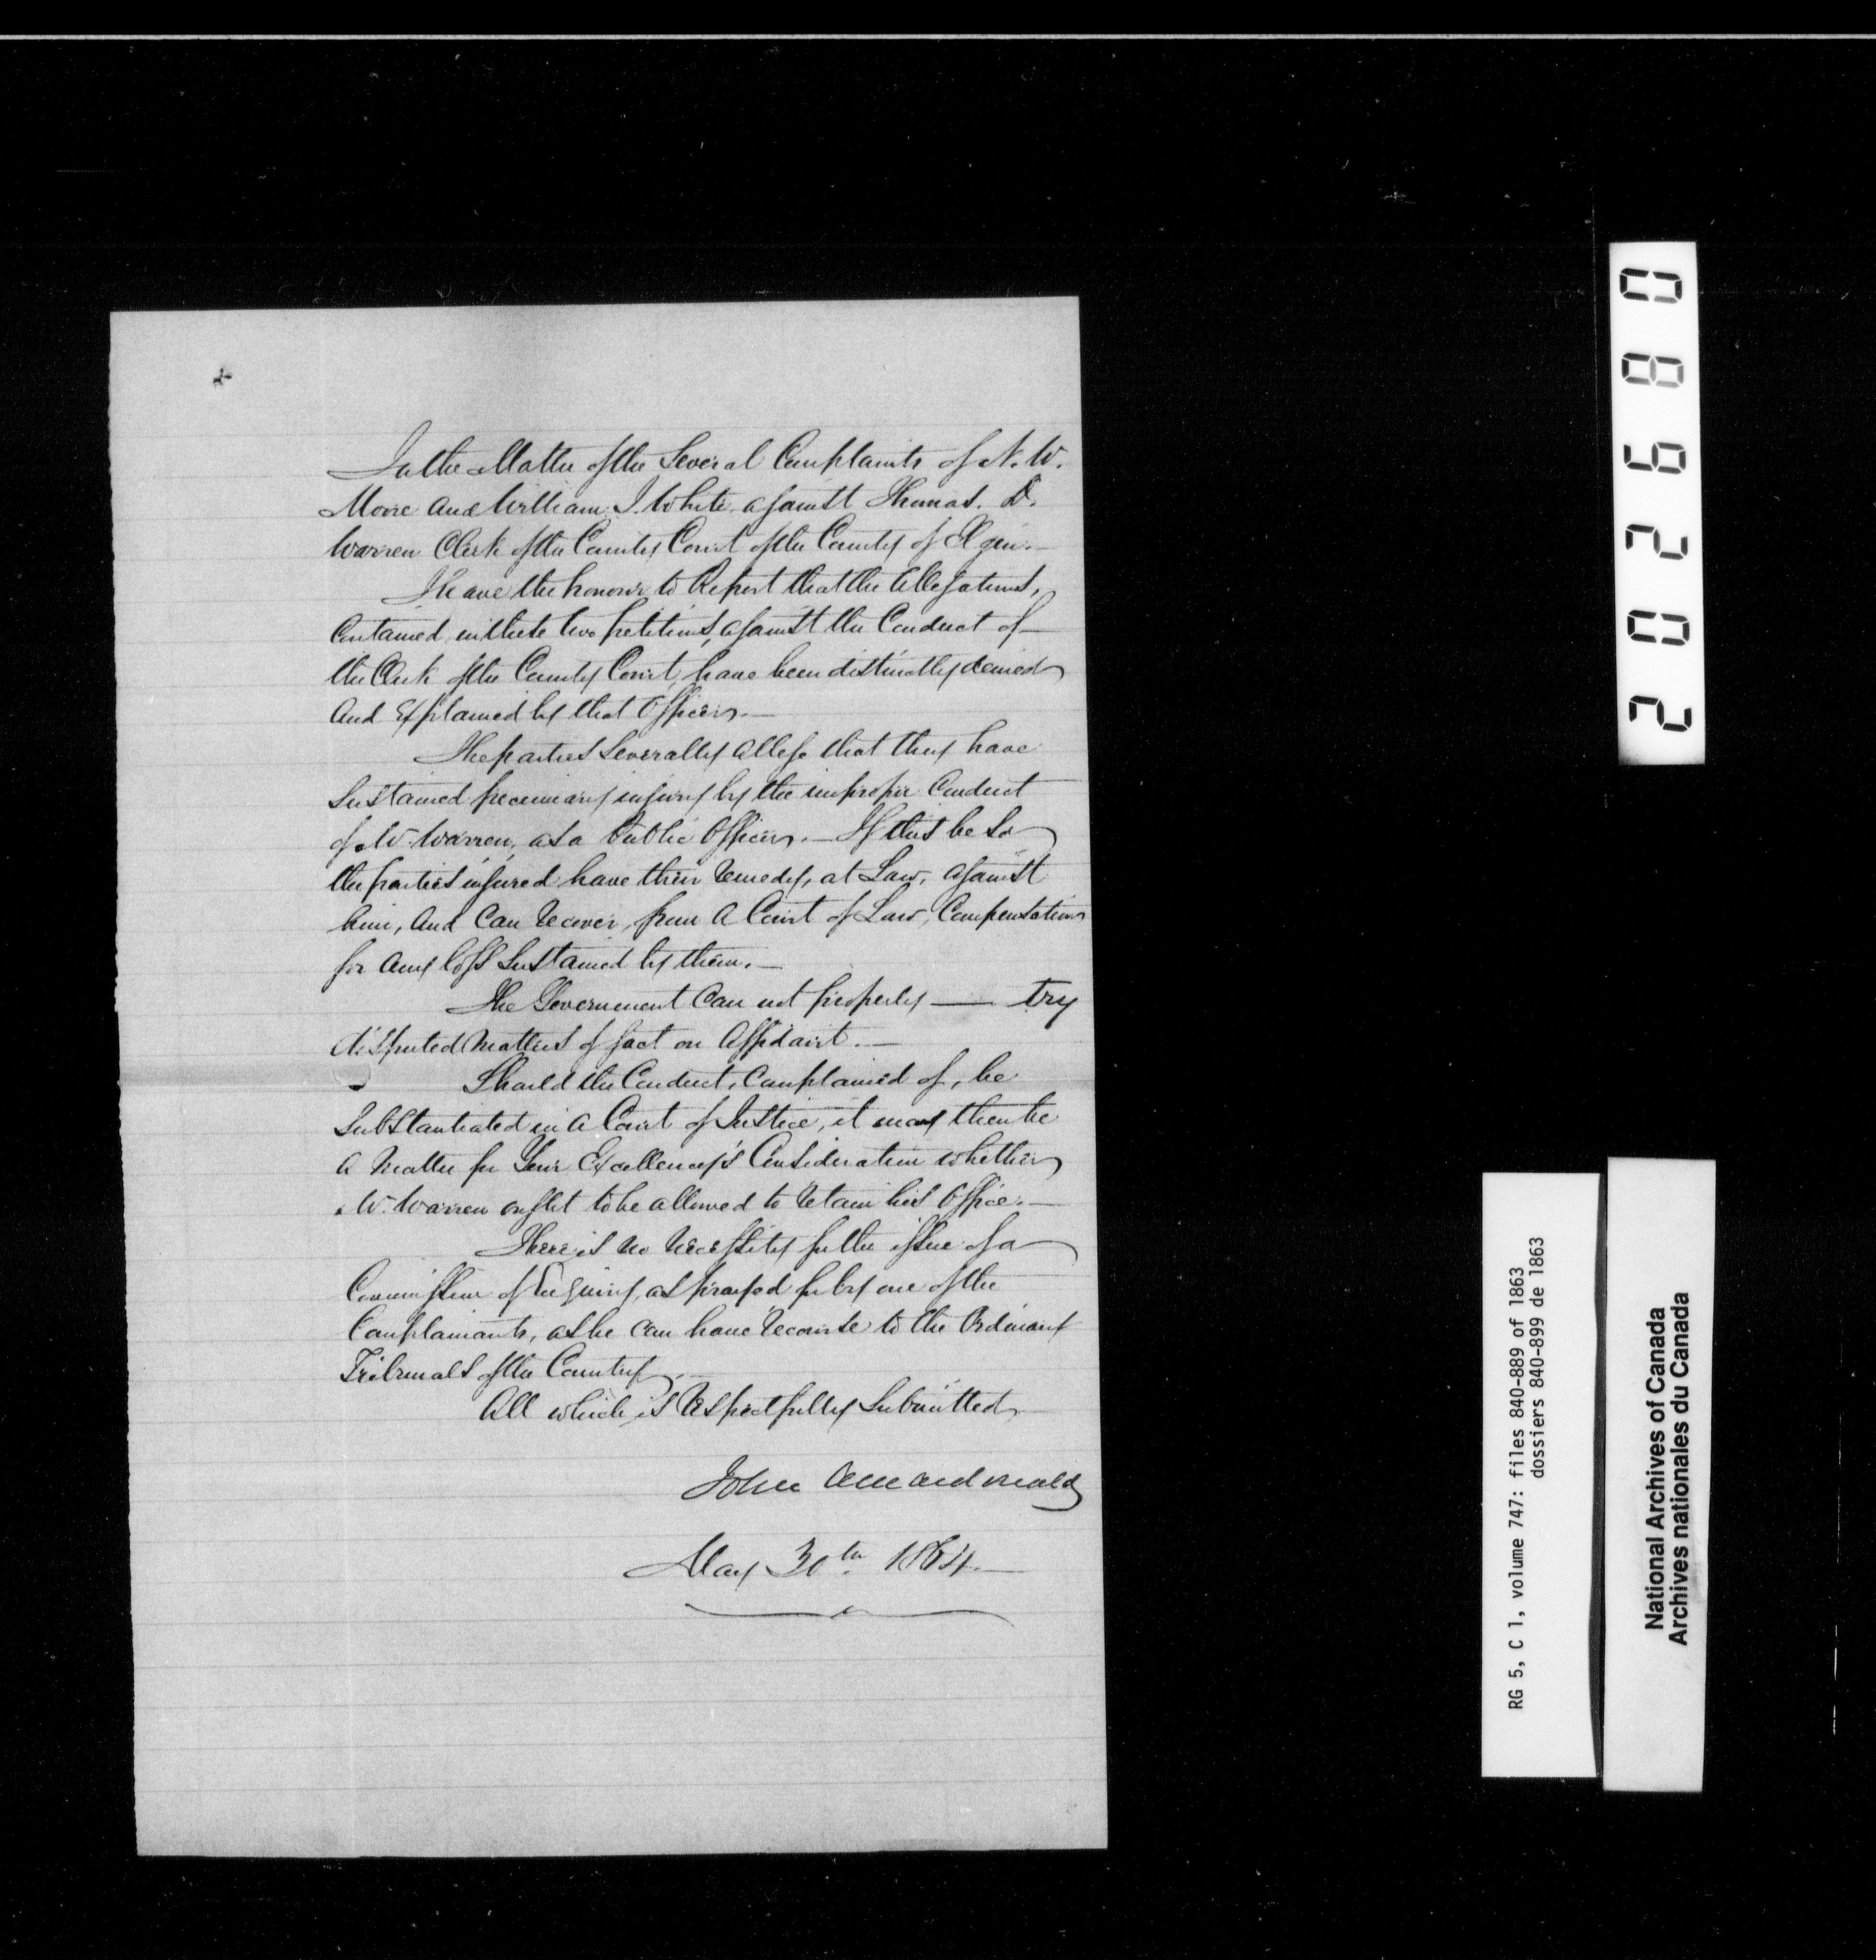 In the Matter of the Several Complaints of N. W.
Moore and William J. White against Thomas. D.
Warren Clerk of the County Court of the County of Elgin.—
I have the honour to Report that the allegations,
Contained in these two petitions, against the Conduct of
the Clerk of the County Court, have been distinctly denied
and Explained by that Officer.—
The parties Severally allege that they have
Sustained pecuniary injury by the improper Conduct
of Mr. Warren, as a Public Officer.— If this be So
the parties injured have their remedy, at Law, against
him, and Can recover, from a Court of Law, Compensation
for any loss Sustained by them.—
The Government Can not properly — try
disputed Matters of fact on Affidavit.—
Should the Conduct, Complained of, be
Substantiated in a Court of Justice, it may then be
a Matter for Your Excellency's Consideration whether
Mr. Warren ought to be allowed to retain his Office.—
There is no necessity for the issue of a
Commission of Enquiry, as prayed for by one of the
Complainants, as he can have recourse to the Ordinary
Tribunals of the Country.—
All which is respectfully Submitted
John A Macdonald
May 30th 1864.—
2 0 2 6 8 0
RG 5, C 1, volume 747: files 840-889 of 1863
dossiers 840-899 de 1863
National Archives of Canada
Archives nationales du Canada